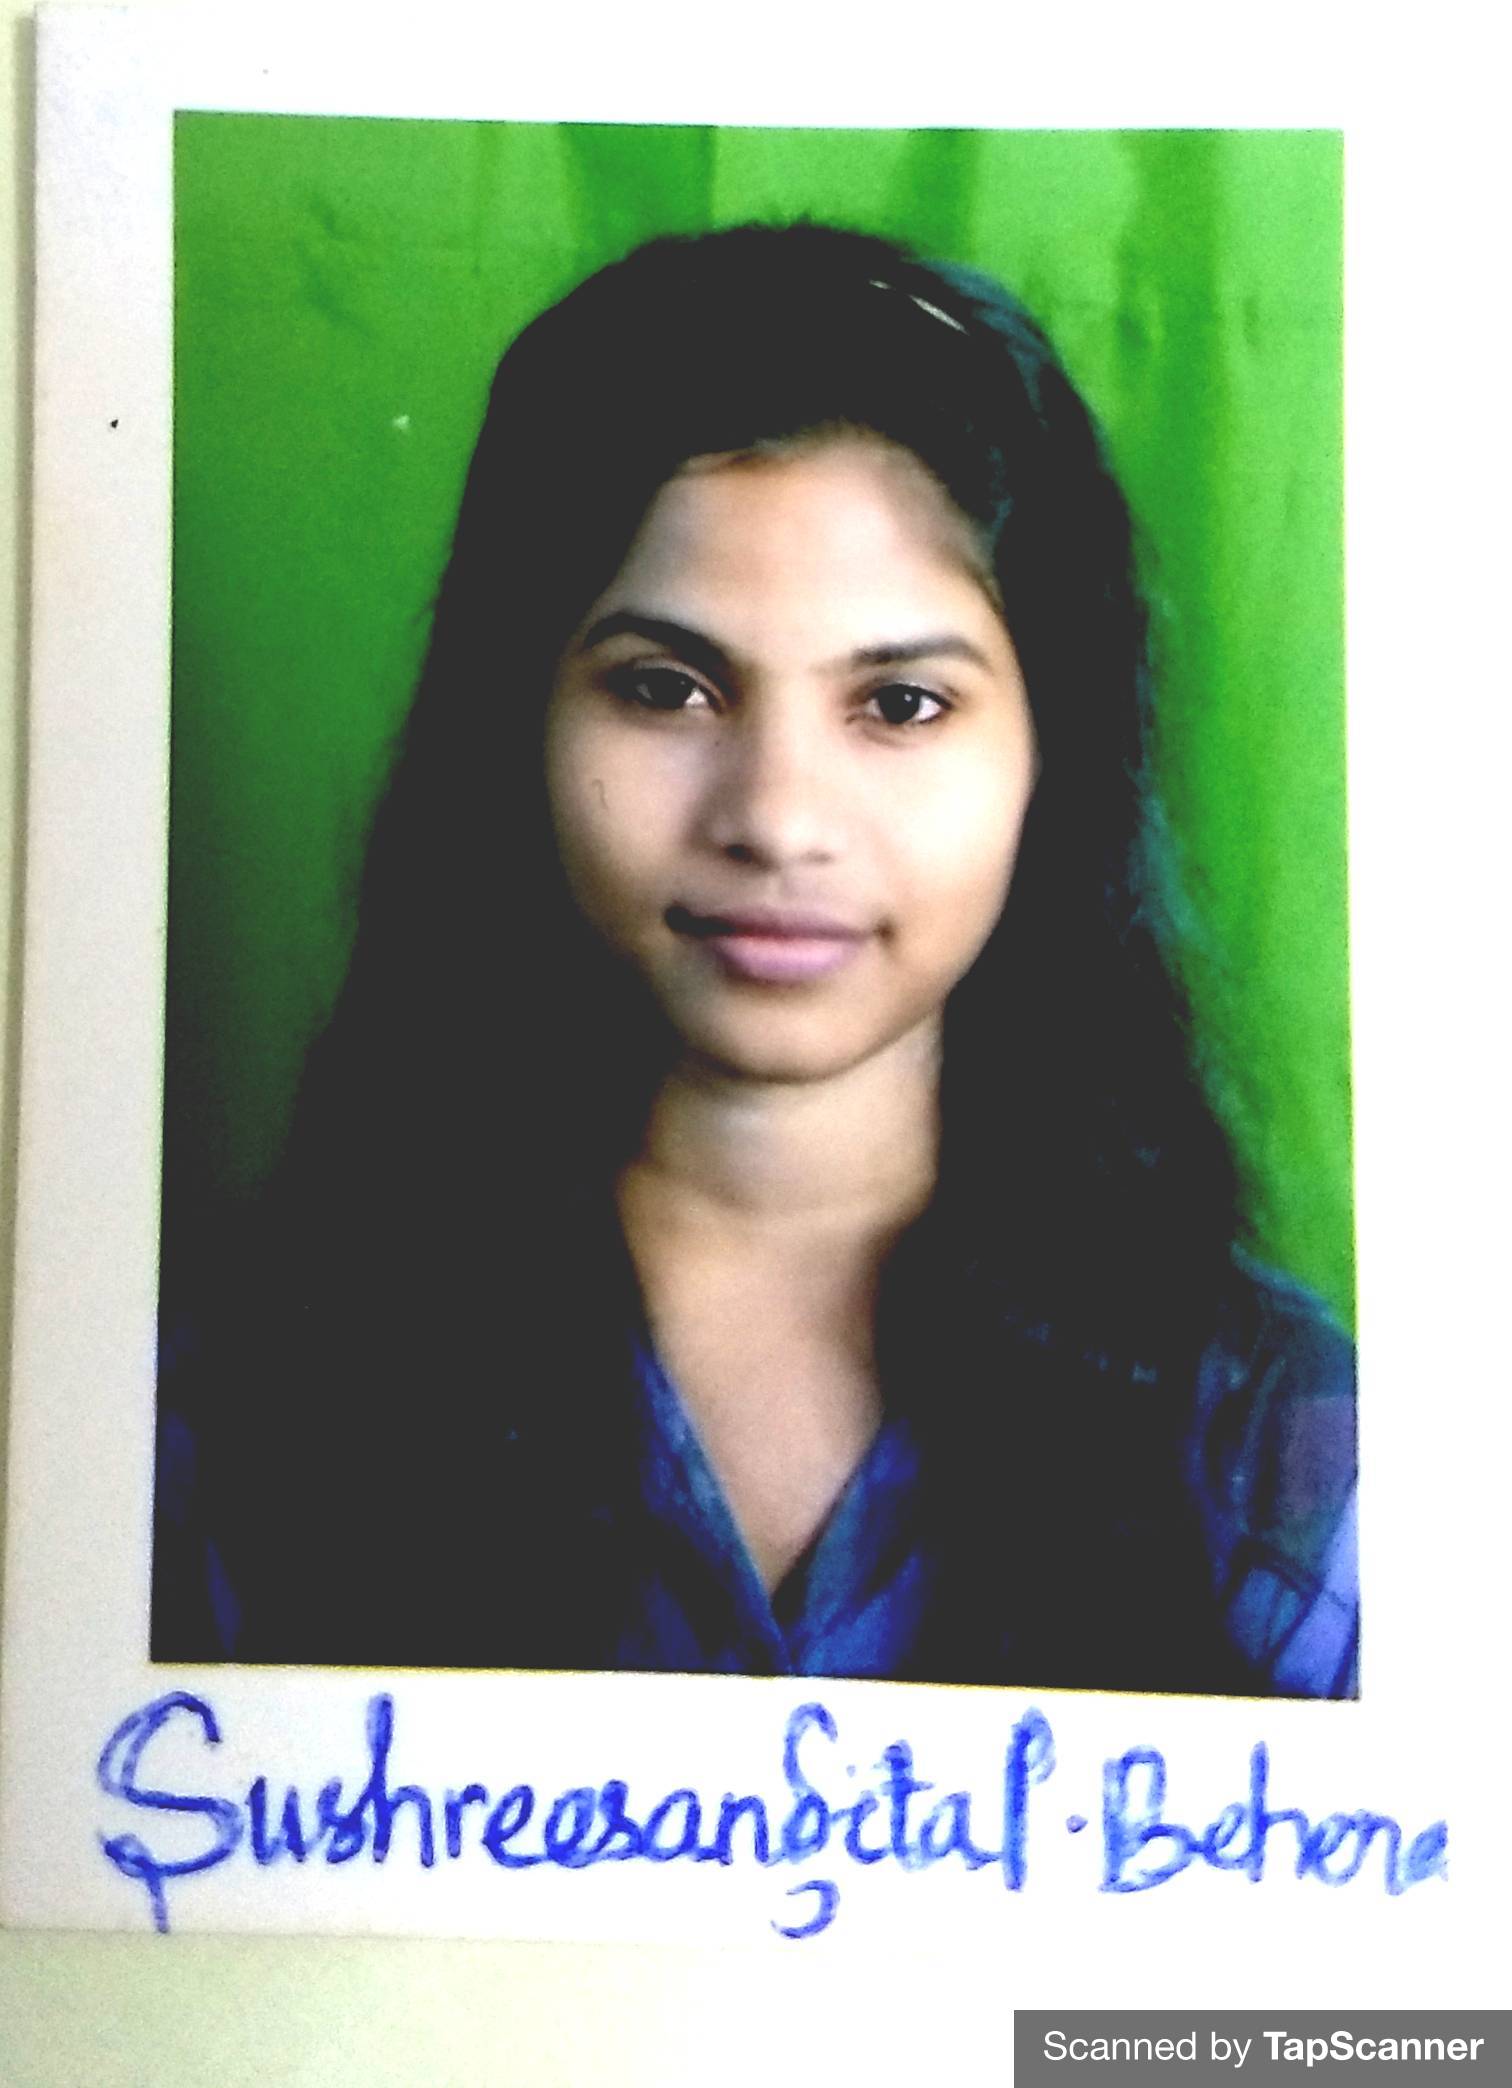 Sushreesangita P. Behera
Scanned by TapScanner